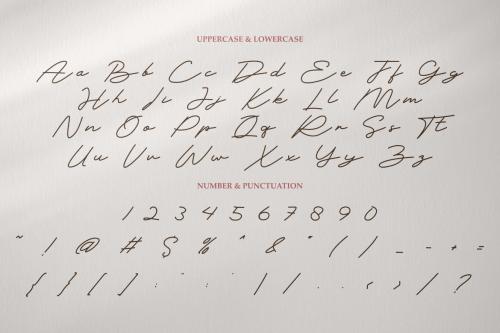 UPPERCASE & LOWERCASE
Aa Bb Cc Dd Ee Ff Gg
Hh Ii Jj Kk Ll Mm
Nn Oo Pp Qq Rr Ss Tt
Uu Vv Ww Xx Yy Zz
NUMBER & PUNCTUATION
1 2 3 4 5 6 7 8 9 0
~ ! @ # $ % ^ & * ( ) _ - + =
{ } [ ] : " ; ' | \ . , < > / ?